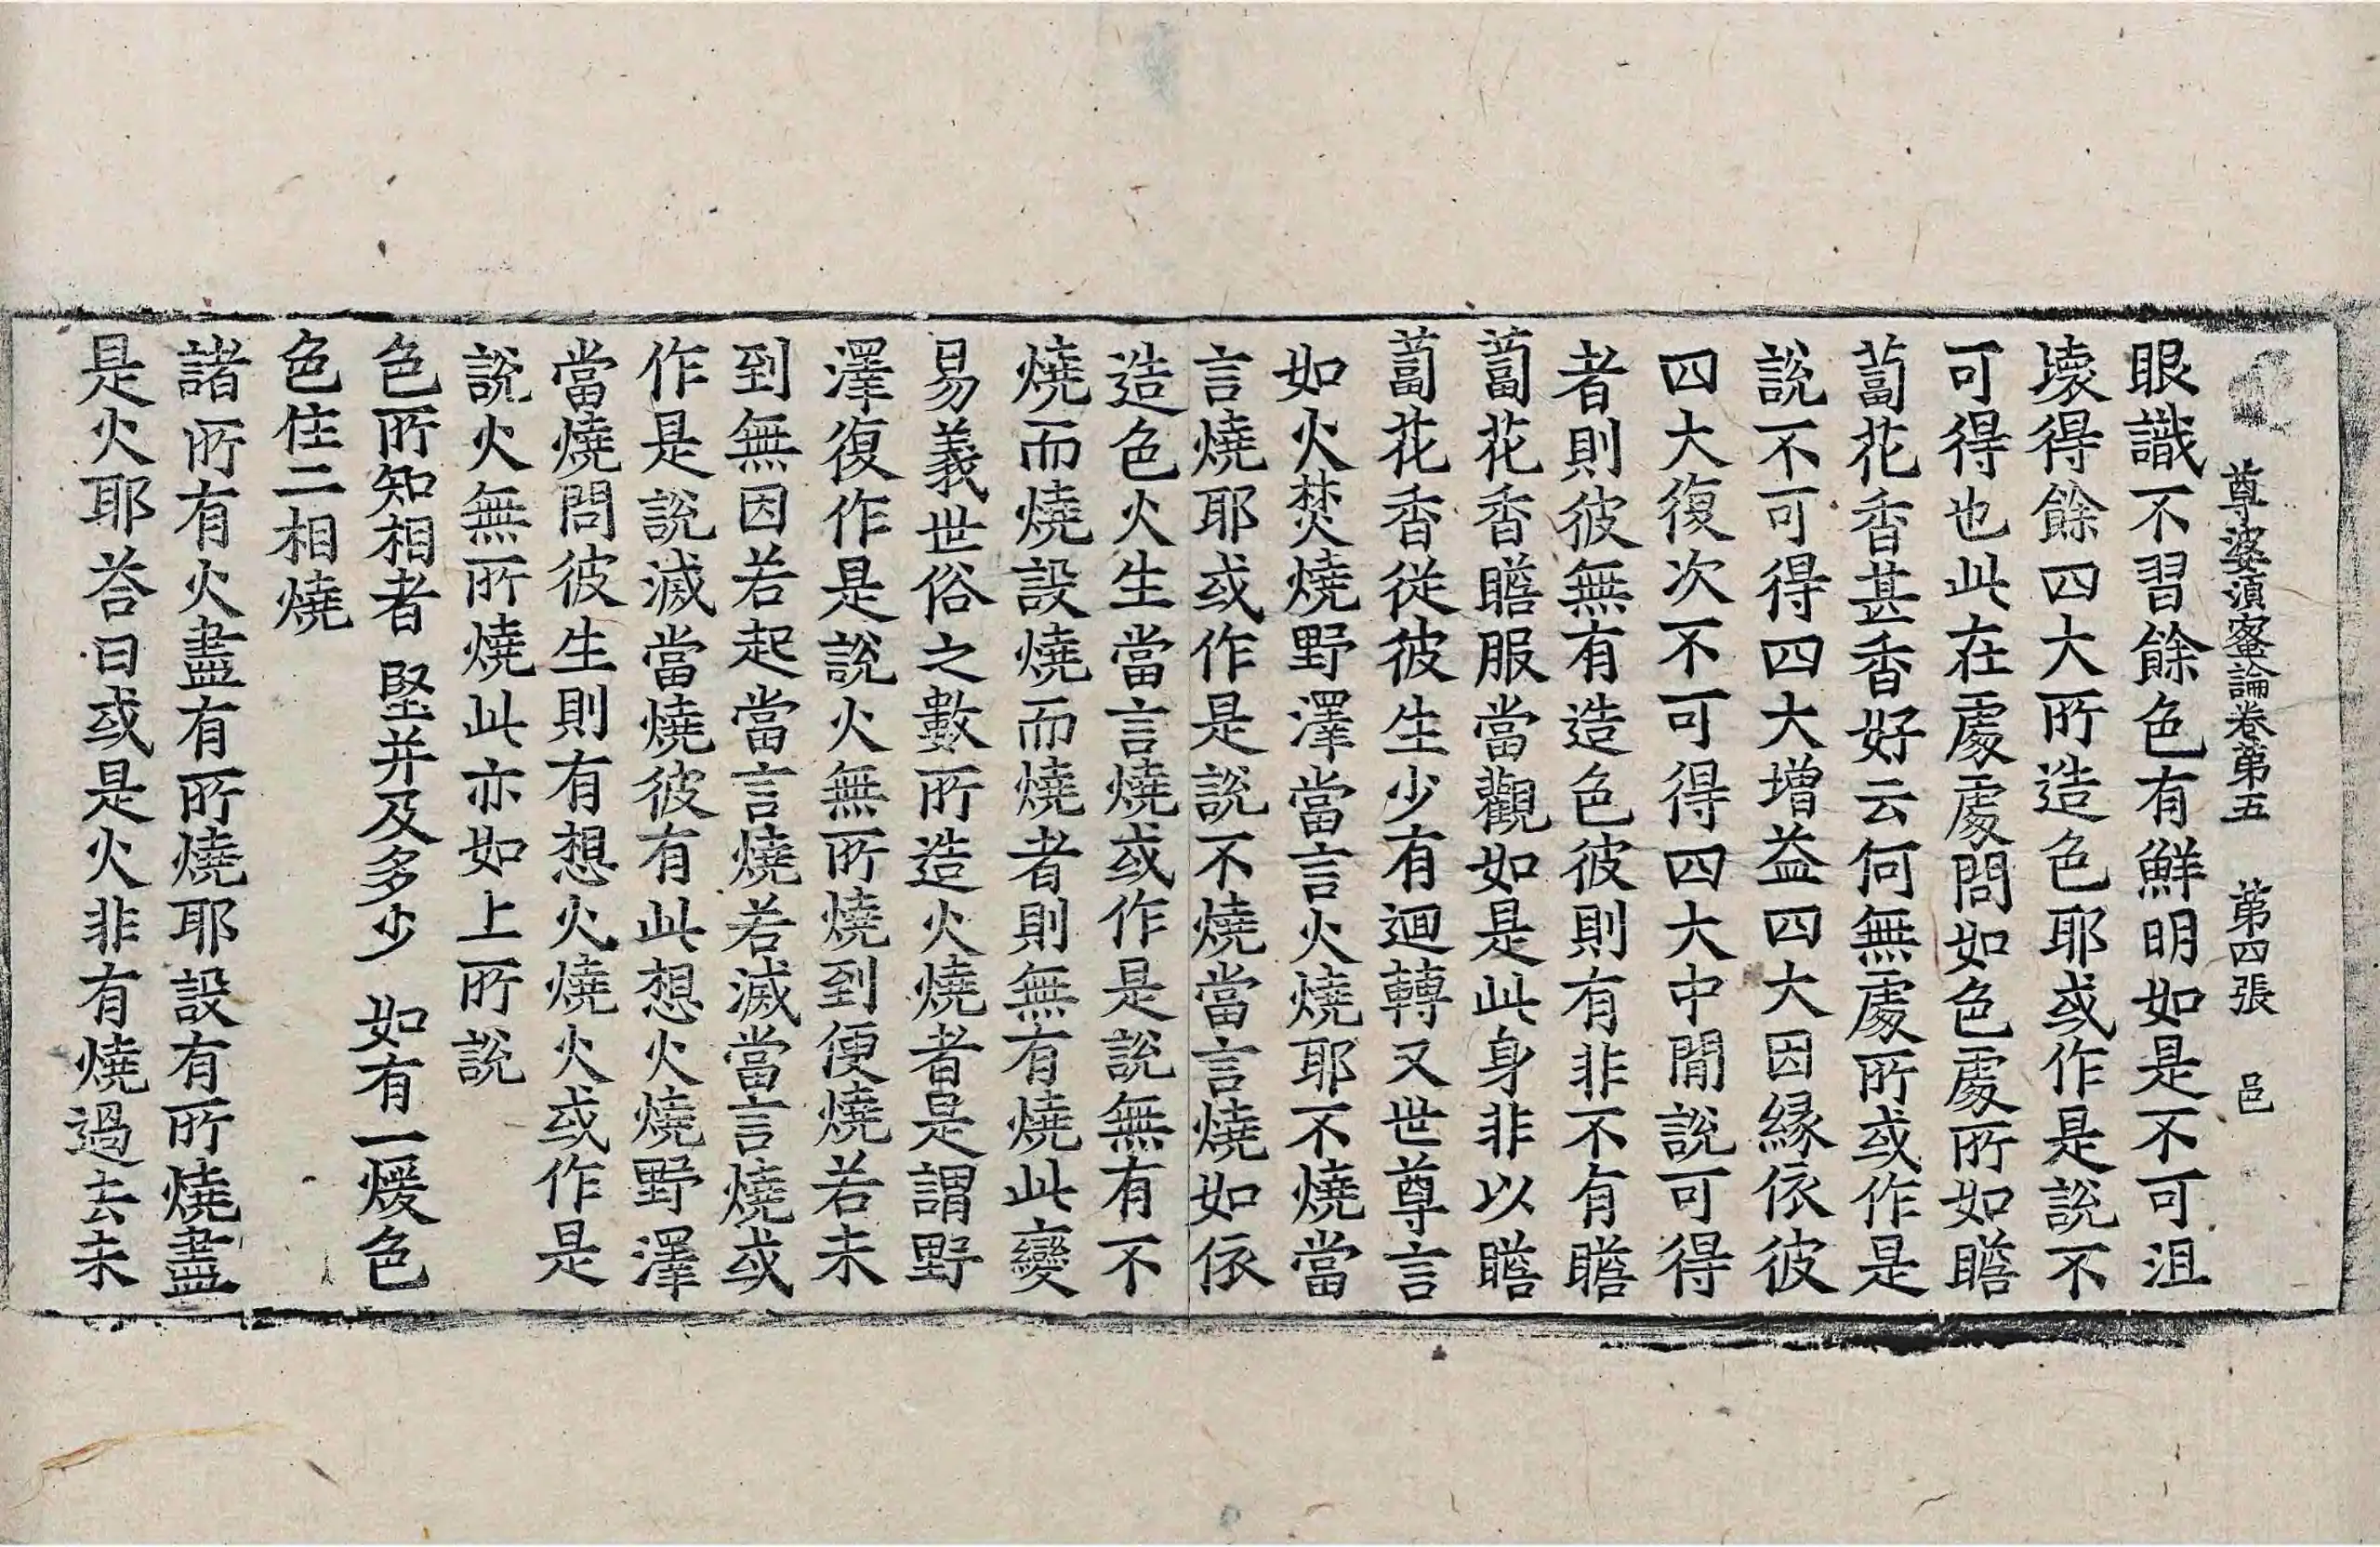 尊婆湏蜜論卷第五　第四張　邑
眼識不習餘色有鮮明如是不可沮
壞得餘四大所造色耶或作是說不
可得也此在處處問如色處所如瞻
蔔花香甚香好云何無處所或作是
說不可得四大增益四大因緣依彼
四大復次不可得四大中間說可得
者則彼無有造色彼則有非不有瞻
蔔花香瞻服當觀如是此身非以瞻
蔔花香從彼生少有迴轉又世尊言
如火焚燒野澤當言火燒耶不燒當
言燒耶或作是說不燒當言燒如依
造色火生當言燒或作是說無有不
燒而燒設燒而燒者則無有燒此變
易義世俗之數所造火燒者是謂野
澤復作是說火無所燒到便燒若未
到無因若起當言燒若滅當言燒或
作是說滅當燒彼有此想火燒野澤
當燒問彼生則有想火燒火或作是
說火無所燒此亦如上所說
色所知相者　堅并及多少　如有一煖色
色住二相燒
諸所有火盡有所燒耶設有所燒盡
是火耶荅曰或是火非有燒過去未